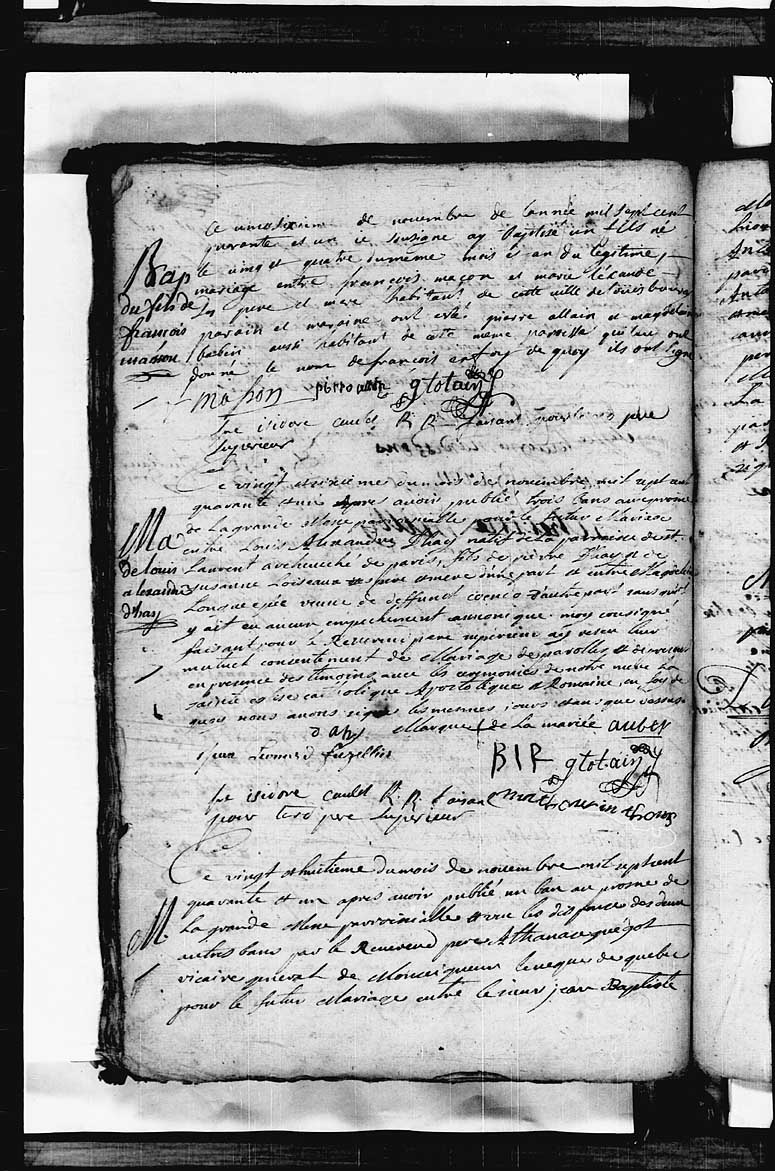 Ce vingt sixieme de novembre de lannée mil sept cent
quarante et un ie sousigne ay Baptisé un fils né
le vingt quatre du meme mois et an du légitime
mariage entre françois maçon et marie lécaude
ses pere et mere habitant de cette ville de Louisbourg
parain et maraine ont estés pierre allain et magdelaine
babin aussi habitant de cette meme paroisse qui luy ont
donné le nom de françois en foy de quoy ils ont signé
Bap
du fils de
francois
masson
ma son pierro allin g totain
fre isidore caulet R. R. faisant pour le pere
superieur
Ce vingt et sixieme du mois de nouembre mil sept cent
quarante et un apres auoir publié trois bans au prosne
de La grande Messe paroissialle pour le futur Mariage
entre Louis Alexandre Dhay natif de La paroisse de st.
Laurent archeuéché de paris, fils de pierre Dhay et de
susanne Loiseaux ses pere et mere d'une part et entre Magdelaine
Longue epée veuue de deffunct d'autre part sans quil
y ait eu aucun empechement cannonique. moy sousigné
faisant pour le Reuerend pere superieur ay receu leur
mutuel consentement de Mariage de parolles et de presens
en presence des temoins auec les ceremonies de notre mere La
sainte eglise catholique Apostolique et Romaine, en foy de
quoy nous auons signé les mesmes jours et an que dessus
Ma
de louis
alexandre
d'hay
d ay Marque de La mariée auber
jean Leonard
BIR g totain
fre isidore caulet R. R. faisan
pour le rd pere superieur
Ce vingt et huitieme du mois de nouembre mil sept cent
quarante et un apres auoir publié un ban au prosne de
La grande Messe parroissialle et vue les dispence des deux
autres bans par le Reuerend pere Athanace guégot
vicaire general de Monseigneur leueque de quebec
pour le futur Mariage entre le sieur jean Baptiste
M